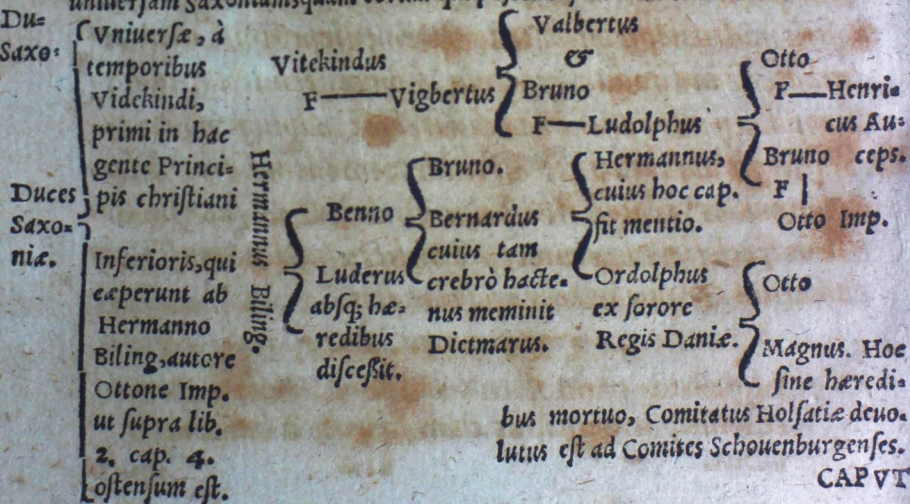 Du=
Saxo:
Vniuersæ, à
temporibus
Videkindi,
primi in hac
gente Princi=
pis christiani
Duces
Saxo=
niæ.
Inferioris, qui
cæperunt ab
Hermanno
Biling, autore
Ottone Imp.
ut supra lib.
2. cap. 4.
ostensum est.
Vitekindus
F—Vigbertus
Valbertus
&
Bruno
F—Ludolphus
Otto
F—Henri=
cus Au=
ceps.
Bruno
F |
Otto Imp.
Hermannus Biling.
Benno
Luderus
absq; hæ=
redibus
discessit.
Bruno.
Bernardus
cuius tam
crebrò hacte=
nus meminit
Dictmarus.
Hermannus,
cuius hoc cap.
fit mentio.
Ordolphus
ex sorore
Regis Daniæ.
Otto
Magnus. Hoc
sine hæredi=
bus mortuo, Comitatus Holsatiæ deuo=
lutus est ad Comites Schouenburgenses.
CAPVT